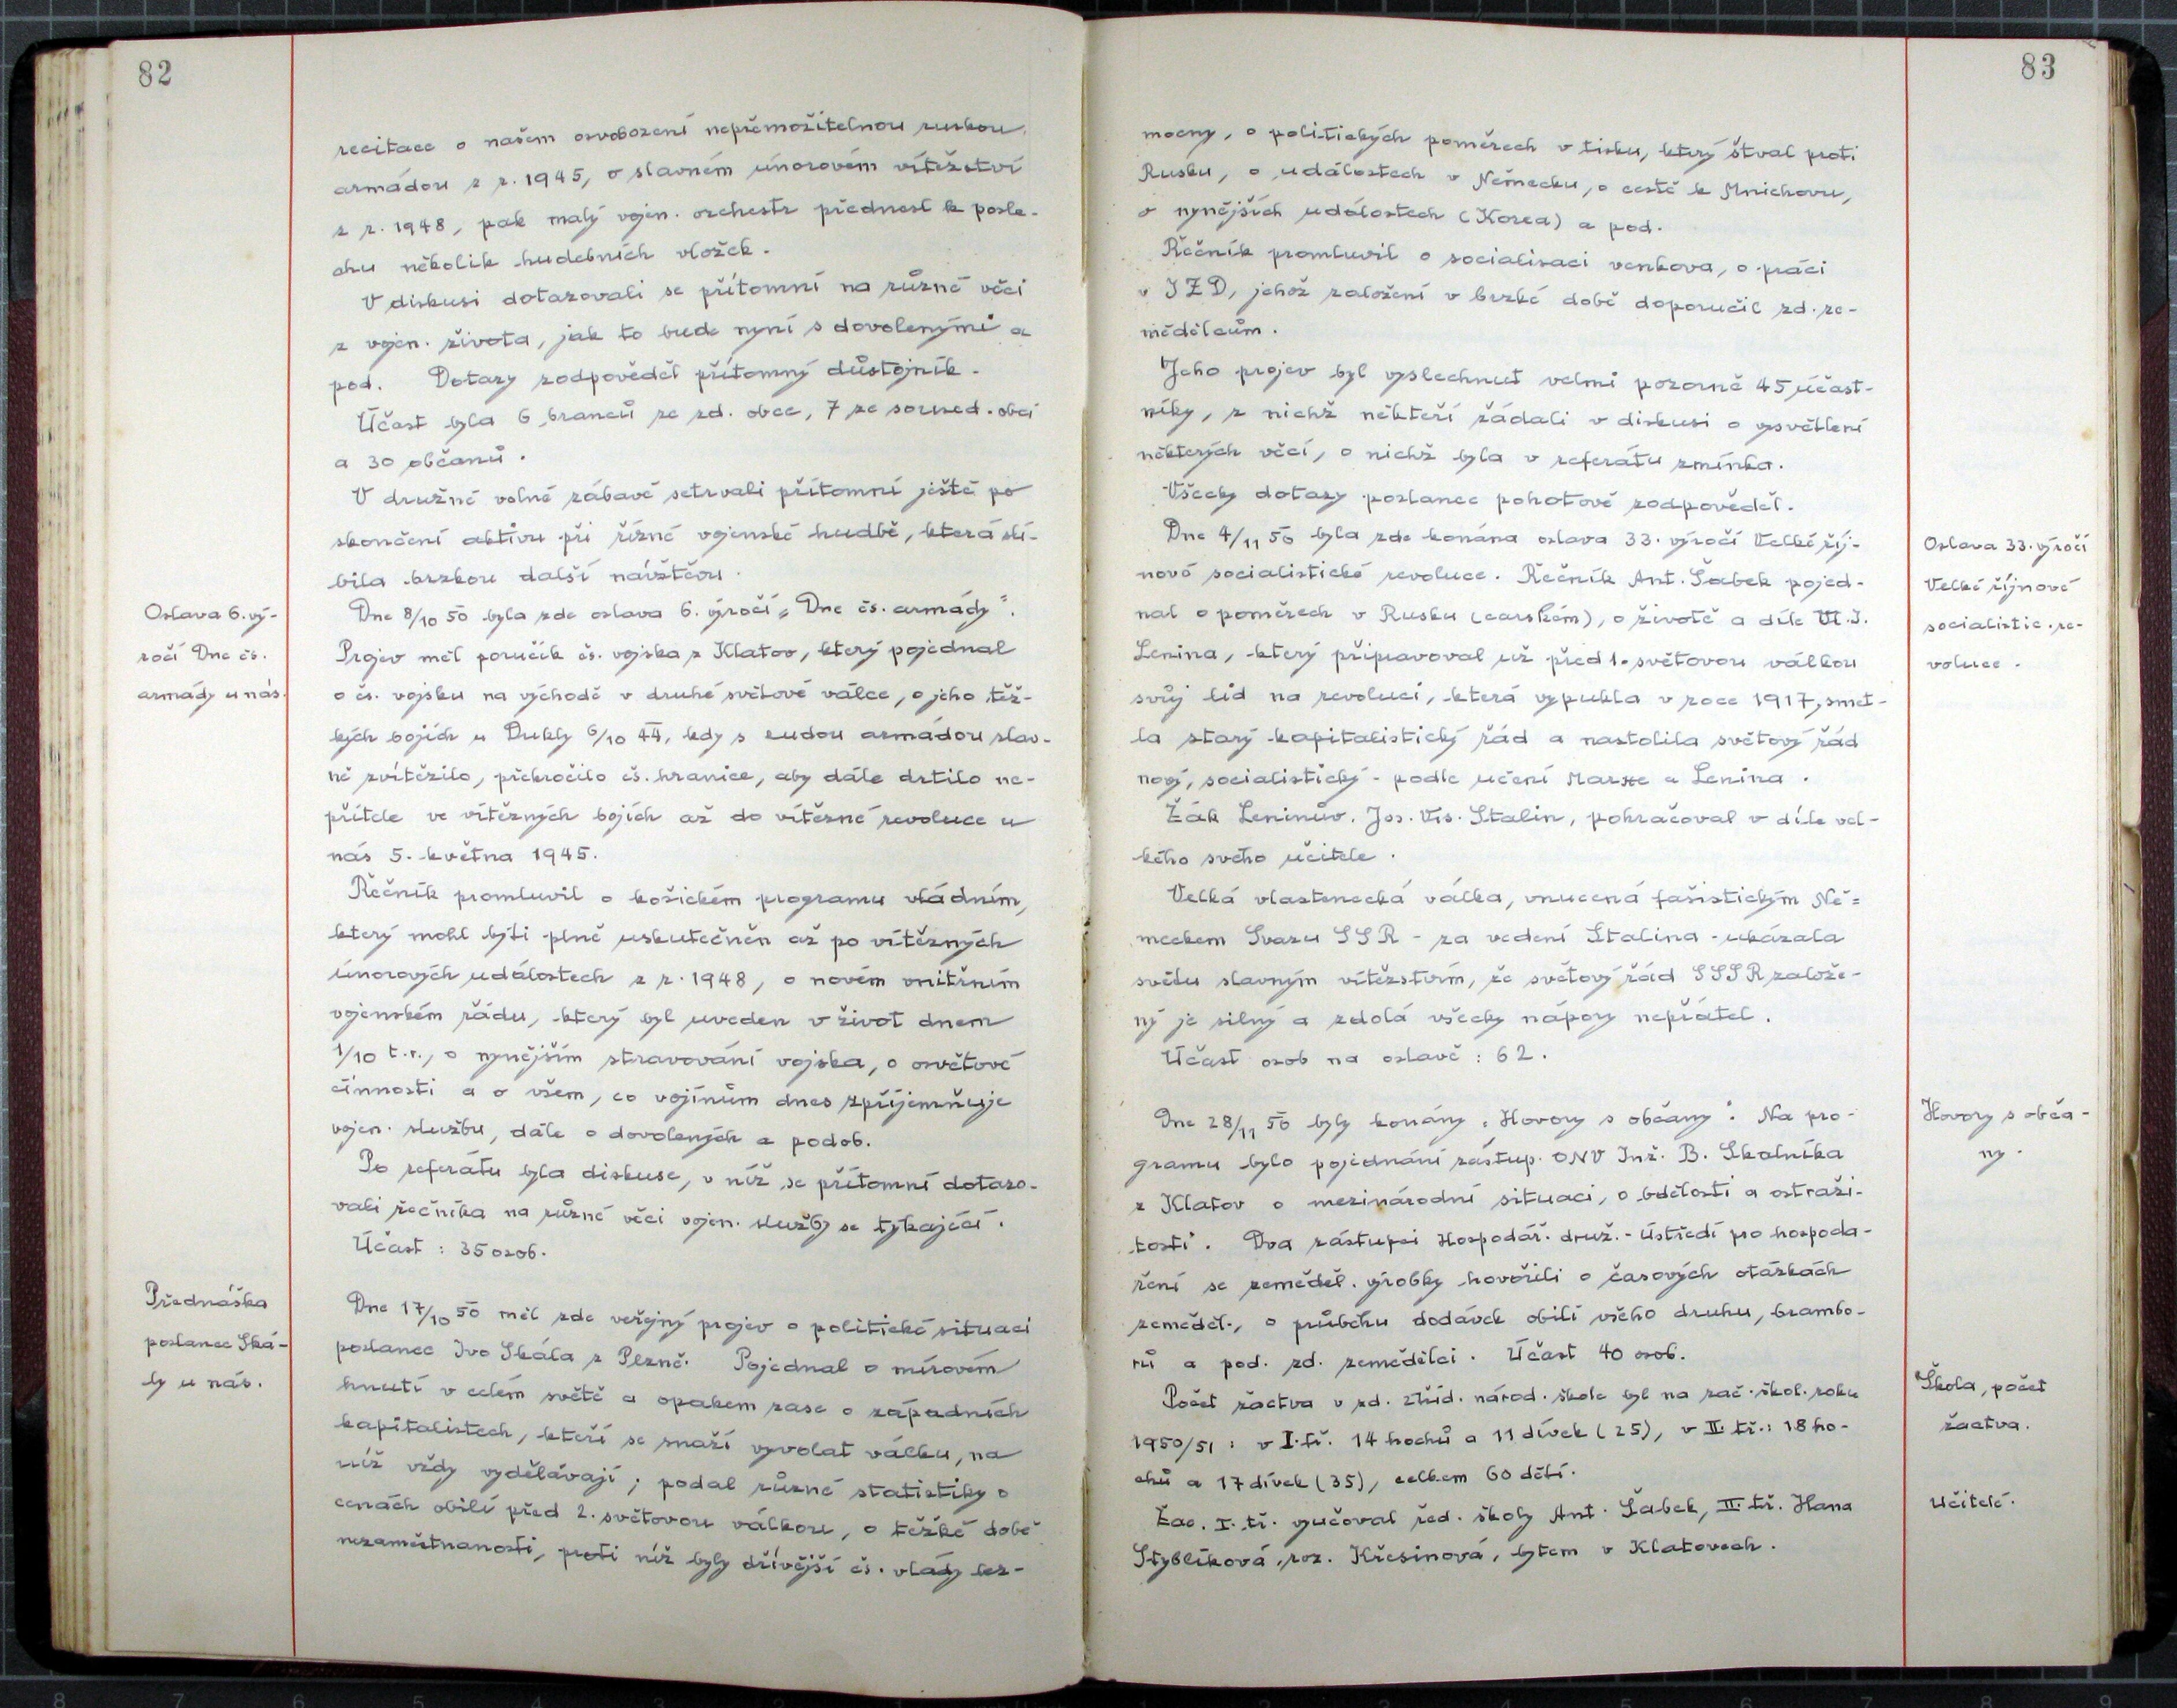 82
recitace o našem osvobození nepřemožitelnou ruskou
armádou z r. 1945, o slavném únorovém vítězství
z r. 1948, pak malý vojen. orchestr přednesl k posle-
chu několik hudebních vložek.
V diskusi dotazovali se přítomní na různé věci
z vojen. života, jak to bude nyní s dovolenými a
pod. Dotazy zodpověděl přítomný důstojník.
Účast byla 6 branců ze zd. obce, 7 ze soused. obcí
a 30 občanů.
V družné volné zábavě setrvali přítomní ještě po
skončení aktivu při řízné vojenské hudbě, která slí-
bila brzkou další návštěvu.
Oslava 6. vý-
ročí Dne čs.
armády u nás.
Dne 8/10 50 byla zde oslava 6. výročí „Dne čs. armády".
Projev měl poručík čs. vojska z Klatov, který pojednal
o čs. vojsku na východě v druhé světové válce, o jeho těž-
kých bojích u Dukly 6/10 44, kdy s rudou armádou slav-
ně zvítězilo, překročilo čs. hranice, aby dále drtilo ne-
přítele ve vítězných bojích až do vítězné revoluce u
nás 5. května 1945.
Řečník promluvil o košickém programu vládním,
který mohl býti plně uskutečněn až po vítězných
únorových událostech z r. 1948, o novém vnitřním
vojenském řádu, který byl uveden v život dnem
1/10 t.r., o nynějším stravování vojska, o osvětové
činnosti a o všem, co vojínům dnes zpříjemňuje
vojen. službu, dále o dovolených a podob.
Po referátu byla diskuse, v níž se přítomní dotazo-
vali řečníka na různé věci vojen. služby se týkající.
Účast : 35 osob.
Přednáška
poslance Ská-
ly u nás.
Dne 17/10 50 měl zde veřejný projev o politické situaci
poslanec Ivo Skála z Plzně. Pojednal o mírovém
hnutí v celém světě a opakem zase o západních
kapitalistech, kteří se snaží vyvolat válku, na
níž vždy vydělávají ; podal různé statistiky o
cenách obilí před 2. světovou válkou, o těžké době
nezaměstnanosti, proti níž byly dřívější čs. vlády bez-
83
mocny, o politických poměrech v tisku, který štval proti
Rusku, o událostech v Německu, o cestě k Mnichovu,
o nynějších událostech (Korea) a pod.
Řečník promluvil o socialisaci venkova, o práci
v JZD, jehož založení v brzké době doporučil zd. ze-
mědělcům.
Jeho projev byl vyslechnut velmi pozorně 45 účast-
níky, z nichž někteří žádali v diskusi o vysvětlení
některých věcí, o nichž byla v referátu zmínka.
Všecky dotazy poslanec pohotově zodpověděl.
Oslava 33. výročí
Velké říjnové
socialistic. re-
voluce.
Dne 4/11 50 byla zde konána oslava 33. výročí Velké říj-
nové socialistické revoluce. Řečník Ant. Šabek pojed-
nal o poměrech v Rusku (carském), o životě a díle Vl. I.
Lenina, který připravoval už před 1. světovou válkou
svůj lid na revoluci, která vypukla v roce 1917, smet-
la starý kapitalistický řád a nastolila světový řád
nový, socialistický - podle učení Marxe a Lenina.
Žák Leninův, Jos. Vis. Stalin, pokračoval v díle vel-
kého svého učitele.
Velká vlastenecká válka, vnucená fašistickým Ně=
meckem Svazu SSR - za vedení Stalina - ukázala
světu slavným vítězstvím, že světový řád SSSR založe-
ný je silný a zdolá všecky nápory nepřátel.
Účast osob na oslavě : 62.
Hovory s obča-
ny.
Dne 28/11 50 byly konány „Hovory s občany". Na pro-
gramu bylo pojednání zástup. ONV Inž. B. Skalníka
z Klatov o mezinárodní situaci, o bdělosti a ostraži-
tosti. Dva zástupci Hospodář. druž. - Ústředí pro hospoda-
ření se zeměděl. výrobky hovořili o časových otázkách
zeměděl., o průběhu dodávek obilí všeho druhu, brambo-
rů a pod. zd. zemědělci. Účast 40 osob.
Škola, počet
žactva.
Počet žactva v zd. 2tříd. národ. škole byl na zač. škol. roku
1950/51 : v I. tř. 14 hochů a 11 dívek (25), v II. tř.: 18 ho-
chů a 17 dívek (35), celkem 60 dětí.
Učitelé.
Žac. I. tř. vyučoval řed. školy Ant. Šabek, II. tř. Hana
Styblíková, roz. Křesinová, bytem v Klatovech.